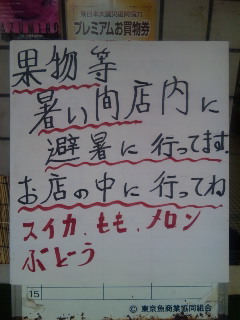 東日本大震災復興協力
プレミアムお買物券
果物等
暑い間店内に
避暑に行ってます.
お店の中に行ってね
スイカ、もも、メロン
ぶどう
15
© 東京魚商業協同組合